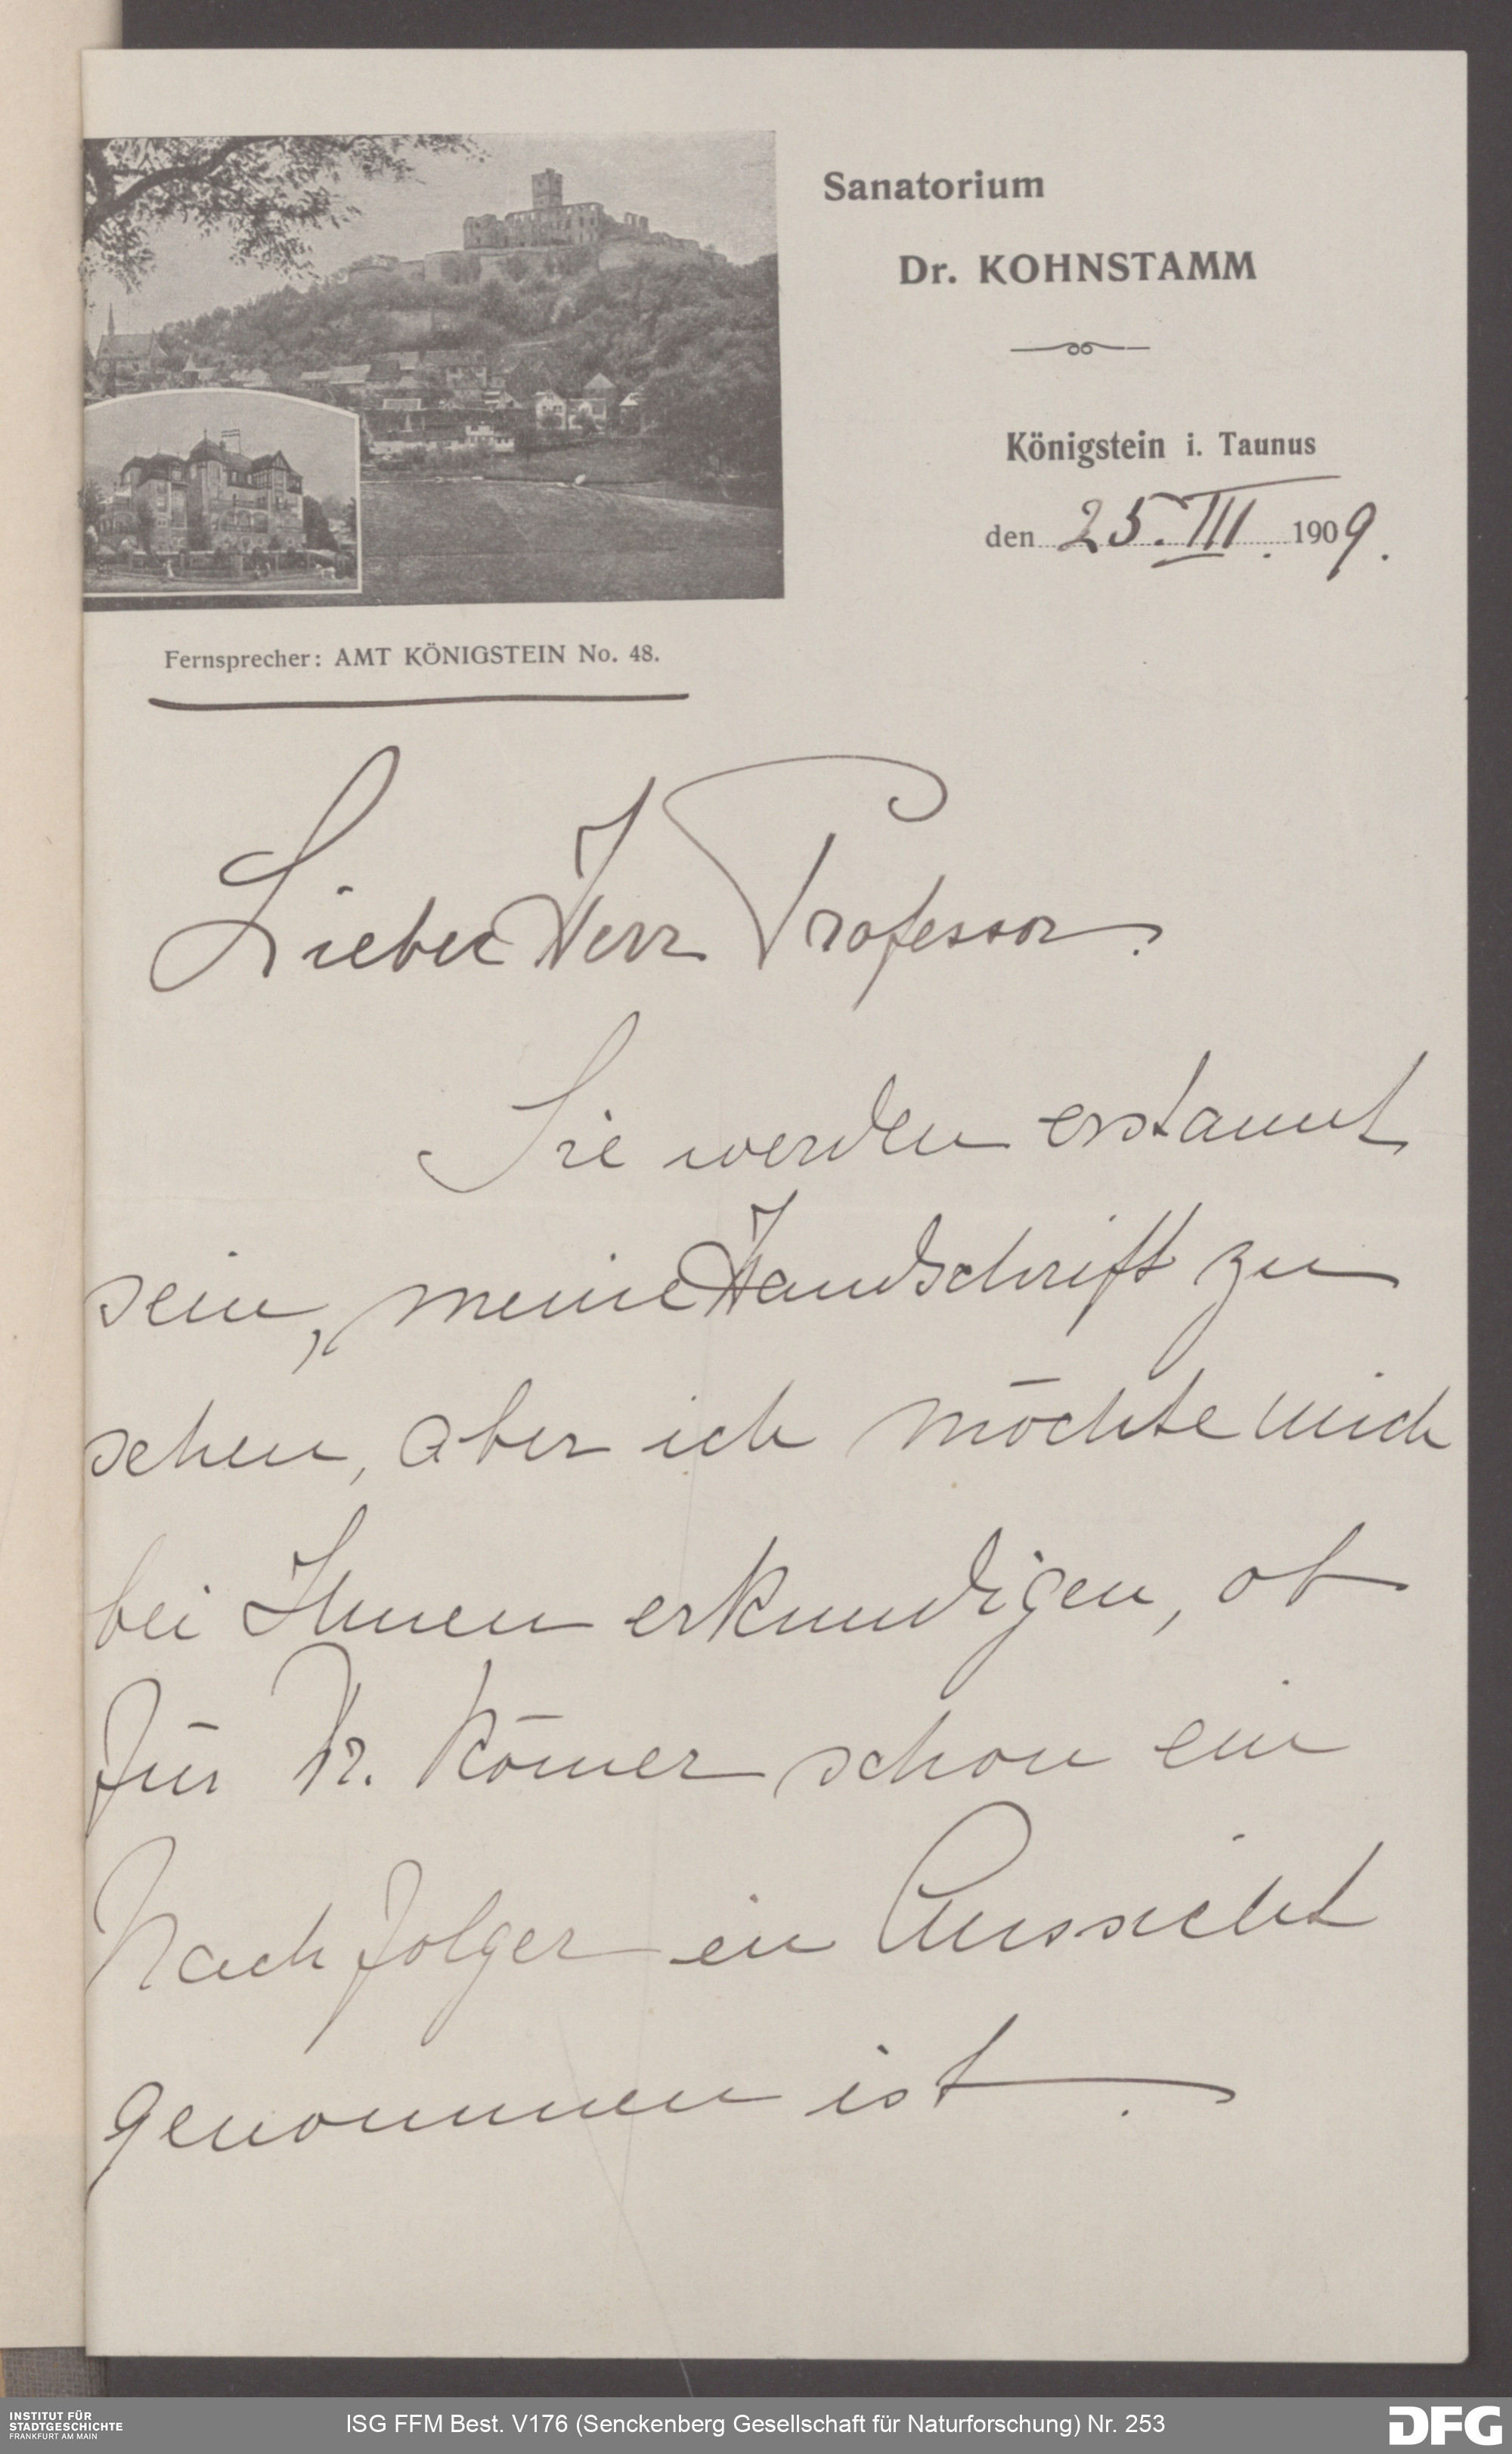 Sanatorium
Dr. KOHNSTAMM
Königstein i. Taunus
den 25. III. 1909.
Fernsprecher: AMT KÖNIGSTEIN No. 48.
Lieber Herr Professor.
Sie werden erstaunt
sein, meine Handschrift zu
sehen, aber ich möchte mich
bei Ihnen erkundigen, ob
für Dr. Römer schon ein
Nachfolger in Aussicht
genommen ist.
INSTITUT FÜR
STADTGESCHICHTE
FRANKFURT AM MAIN
ISG FFM Best. V176 (Senckenberg Gesellschaft für Naturforschung) Nr. 253
DFG